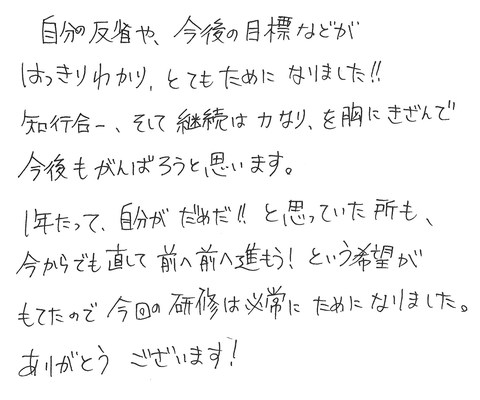 自分の反省や、今後の目標などが
はっきりわかり、とてもためになりました!!
知行合一、そして継続は力なり、を胸にきざんで
今後もがんばろうと思います。
1年たって、自分がだめだ!!と思っていた所も、
今からでも直して前へ前へ進もう!という希望が
もてたので今回の研修は必常にためになりました。
ありがとうございます!